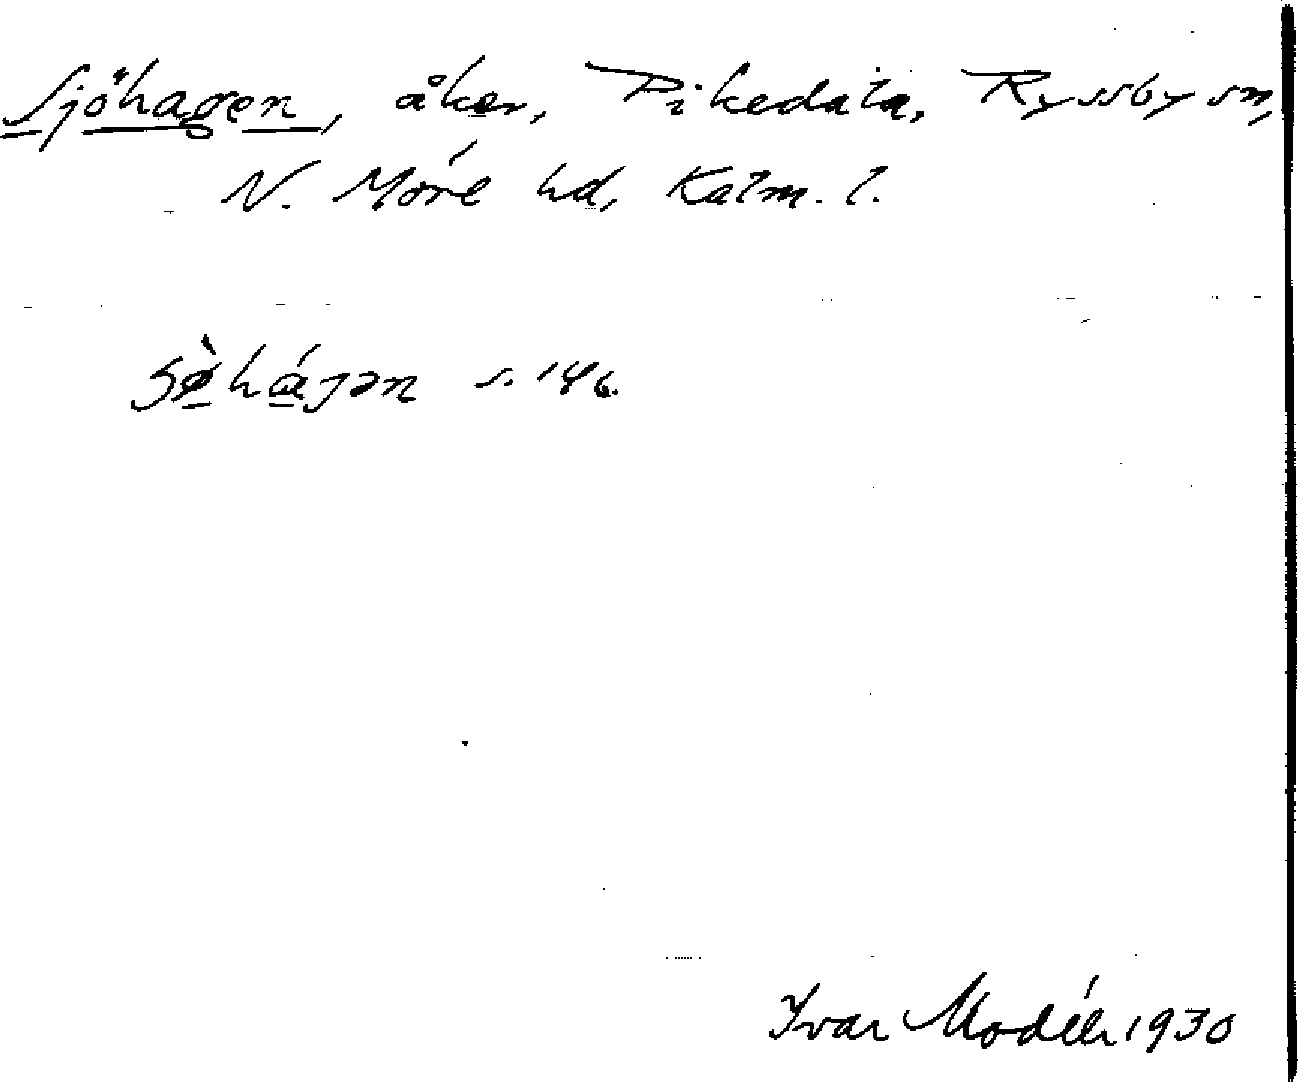 Sjöhagen, åker, Pikedala, Ryssby sn,
N. Möre hd, Kalm. l.
s. 146.
Ivar Modéer 1930